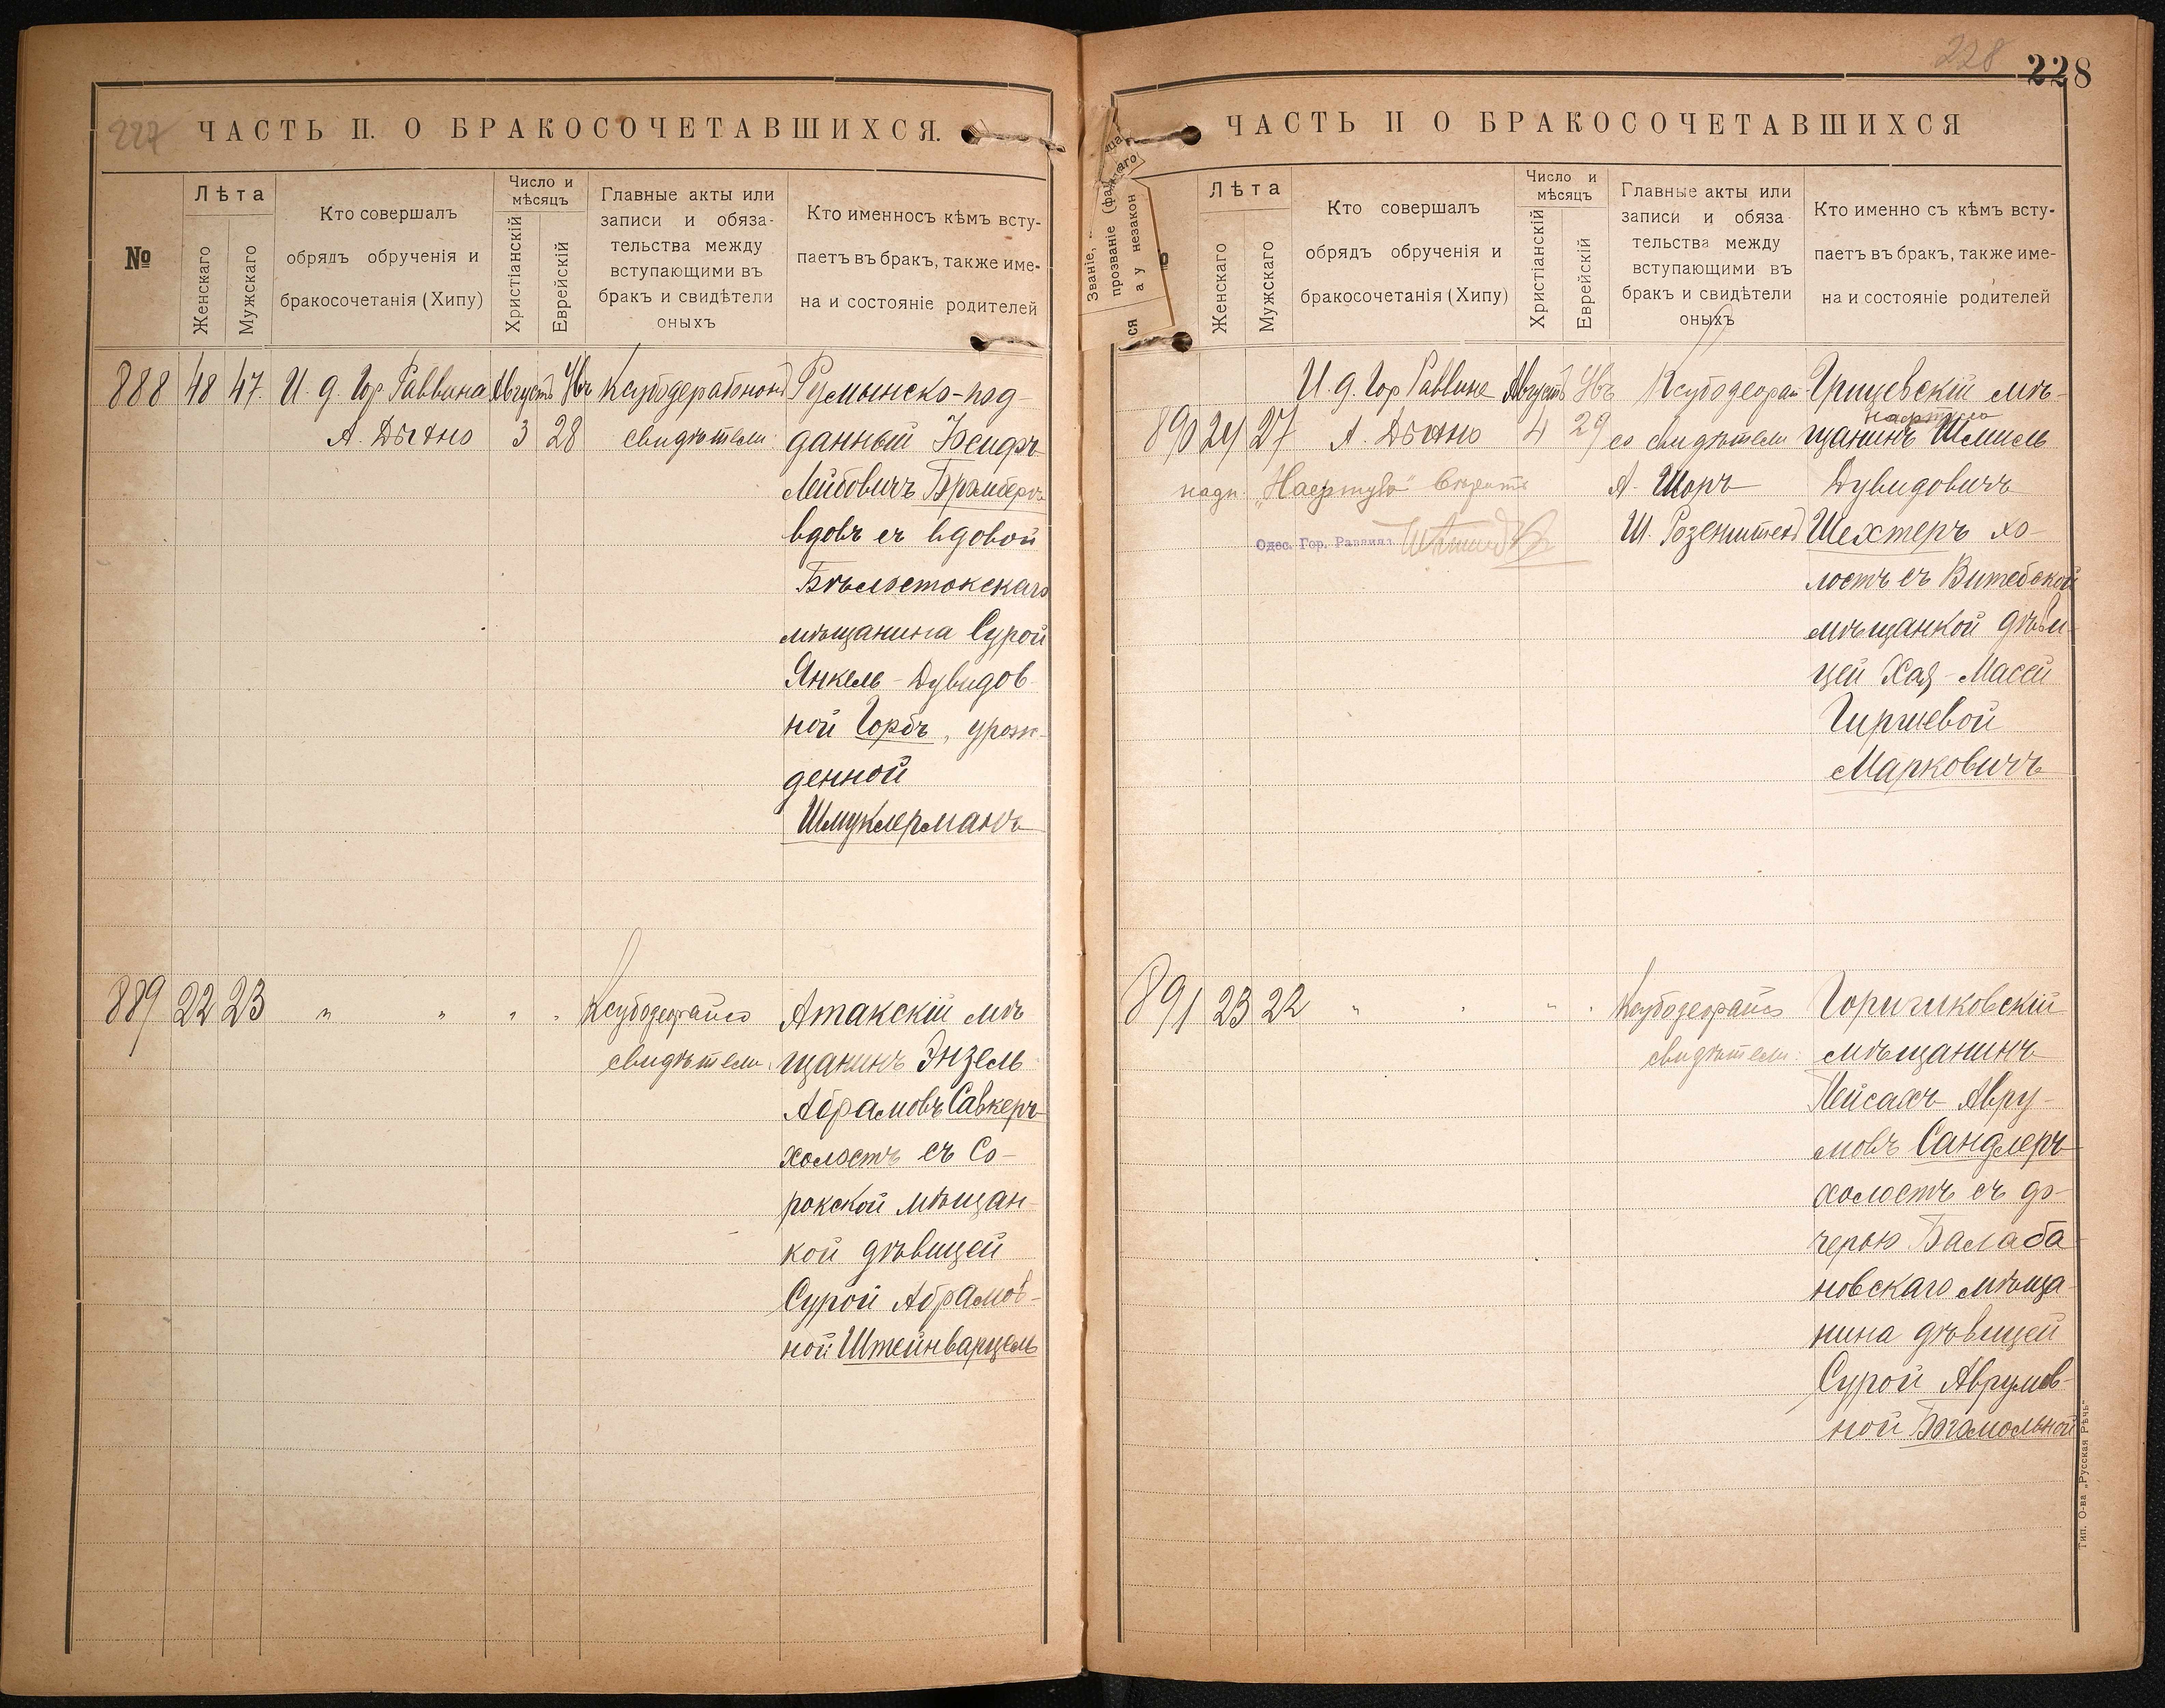 227
ЧАСТЬ II. О БРАКОСОЧЕТАВШИХСЯ.
№
Лѣта
Женскаго
Мужскаго
Кто совершалъ
обрядъ обрученія и
бракосочетанія (Хипу)
Число и
мѣсяцъ
Христіанскій
Еврейскій
Главные акты или
записи и обяза-
тельства между
вступающими въ
бракъ и свидѣтели
оныхъ
Кто именносъ кѣмъ всту-
паетъ въ бракъ, также име-
на и состояніе родителей
888 48 47. И. д. Гор. Раввина Августъ Румынско-под-
3 28 свидѣтели: данный
Лейбовичъ
вдовъ съ вдовой
Бѣлостокскаго
мѣщанина Сурой
Янкель-Дувидов-
ной Горбъ, урож-
денной
Шмуклерманъ
889 22 23 " " " " свидѣтели: Атакскій мѣ
щанинъ Энзель
Абрамовъ Савкеръ
холостъ съ Со-
рокской мѣщан-
кой дѣвицей
Сурой Абрамов-
ной Штейнварцель
228
228
ЧАСТЬ II О БРАКОСОЧЕТАВШИХСЯ
Званіе,
прозваніе
а у незакон
ся
Лѣта
Женскаго
Мужскаго
Кто совершалъ
обрядъ обрученія и
бракосочетанія (Хипу)
Число и
мѣсяцъ
Христіанскій
Еврейскій
Главные акты или
записи и обяза
тельства между
вступающими въ
бракъ и свидѣтели
оныхъ
Кто именно съ кѣмъ всту-
паетъ въ бракъ, также име-
на и состояніе родителей
И. д. Гор. Раввина Августъ Грицевскій мѣ-
890 24 27 4 29 со свидѣтели щанинъ Шмиль
А. Шоръ Дувидовичъ
Одес. Гор. Раввинъ
Ш. Шехтеръ хо-
лостъ съ Витебской
мѣщанкой дѣви-
цей Хая-Масей
Гиршевой
Марковичъ
891 23 22 " " " " свидѣтели: Горичковскій
мѣщанинъ
Пейсахъ Авру-
мовъ Сандлеръ
холостъ съ до-
черью Балаба
новскаго мѣща
нина дѣвицей
Сурой Аврумов-
ной Богомольной
Тип. О-ва „Русская Рѣчь"